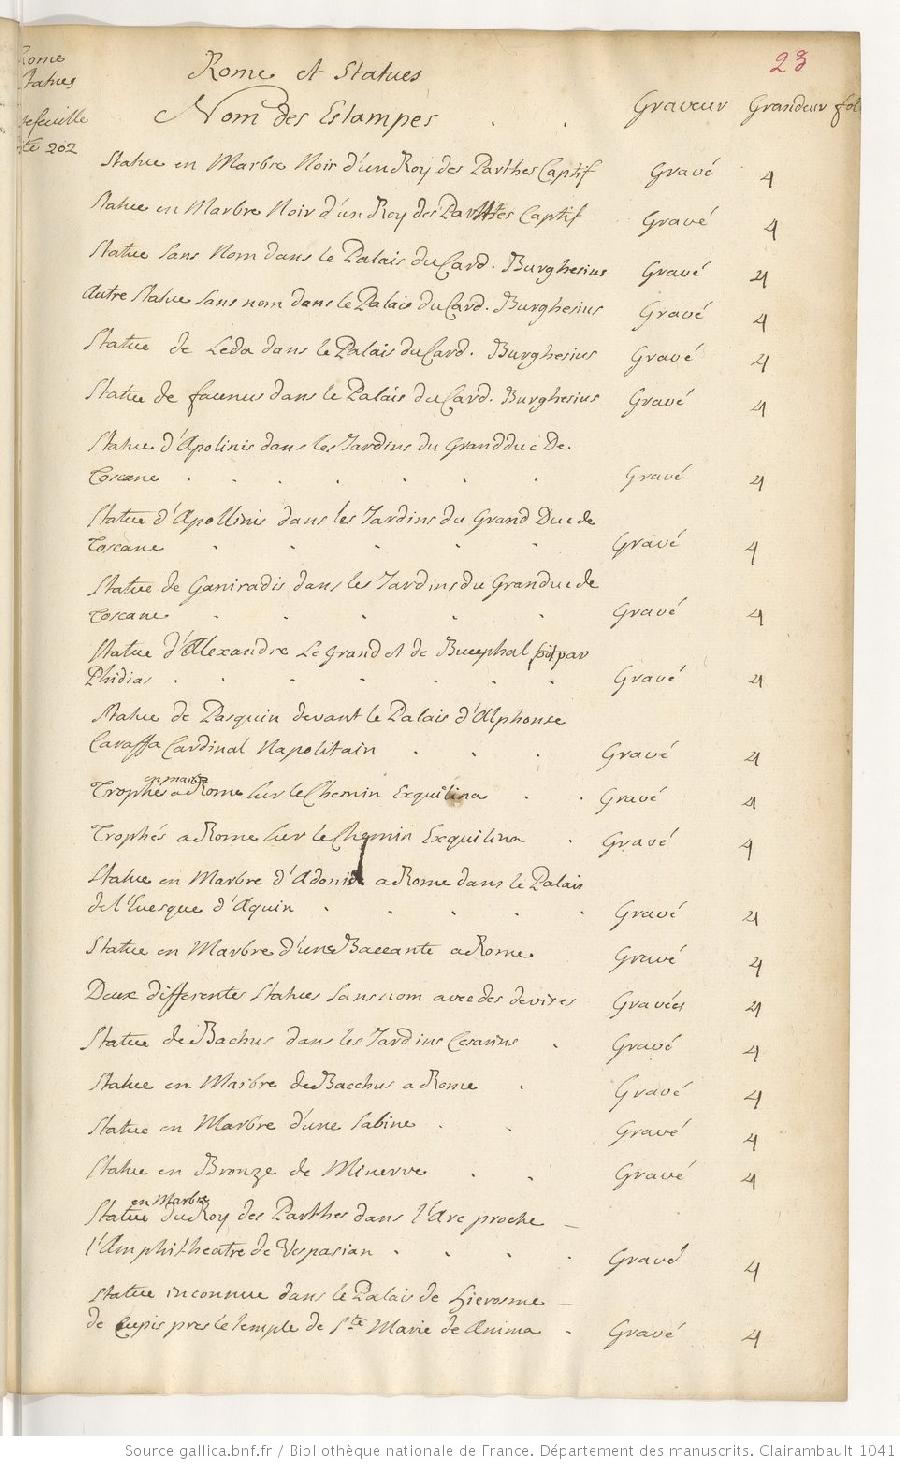 Rome
Statues
feuille
202
23
Rome et Statues
Nom des Estampes . . Graveur Grandeur fol
Statue en Marbre Noir d'un Roy des Parthes Captif Gravé 4
Statue en Marbre Noir d'un Roy des Parthes Captif Gravé 4
Statue sans Nom dans le Palais du Card. Burghesius Gravé 4
Autre Statue sans nom dans le Palais du Card. Burghesius Gravé 4
Statue de Leda dans le Palais du Card. Burghesius Gravé 4
Statue de faunus dans le Palais du Card. Burghesius Gravé 4
Statue d'Apolinis dans les Jardins du Grand duc De
Toscane . . . . . . Gravé 4
Statue d'Apollinis dans les Jardins du Grand Duc de
Toscane . . . . . Gravé 4
Statue de Ganiradis dans les Jardins du Granduc de
Toscane . . . . . Gravé 4
Statue d'Alexandre Le grand et de Bucephal fit par
Phidias . . . . . . Gravé 4
Statue de Pasquin devant le Palais d'Alphonse
Caraffa Cardinal Napolitain . . . Gravé 4
en marbre
Trophés a Rome sur le Chemin Exquilina . . Gravé 4
Trophés a Rome sur le Chemin Exquilina . Gravé 4
Statue en Marbre d'Adonis a Rome dans le Palais
de l'Evesque d'Aquin . . . . . Gravé 4
Statue en Marbre d'une Baccante a Rome. Gravé 4
Deux differentes Statues sans nom avec des devises Gravées 4
Statue de Bachus dans les Jardins Cesarins . Gravé 4
Statue en Marbre de Bacchus a Rome . Gravé 4
Statue en Marbre d'une Sabine . . Gravé 4
Statue en Bronze de Minerve . . Gravé 4
en Marbre
Statue du Roy des Parthes dans l'Arc proche
l'Amphitheatre de Vespasian . . . . Gravé 4
Statue inconnue dans le Palais de Hierosme
de Cupis pres le temple de Ste Marie de Anima . Gravé 4
Source gallica.bnf.fr / Bibliothèque nationale de France. Département des manuscrits. Clairambault 1041